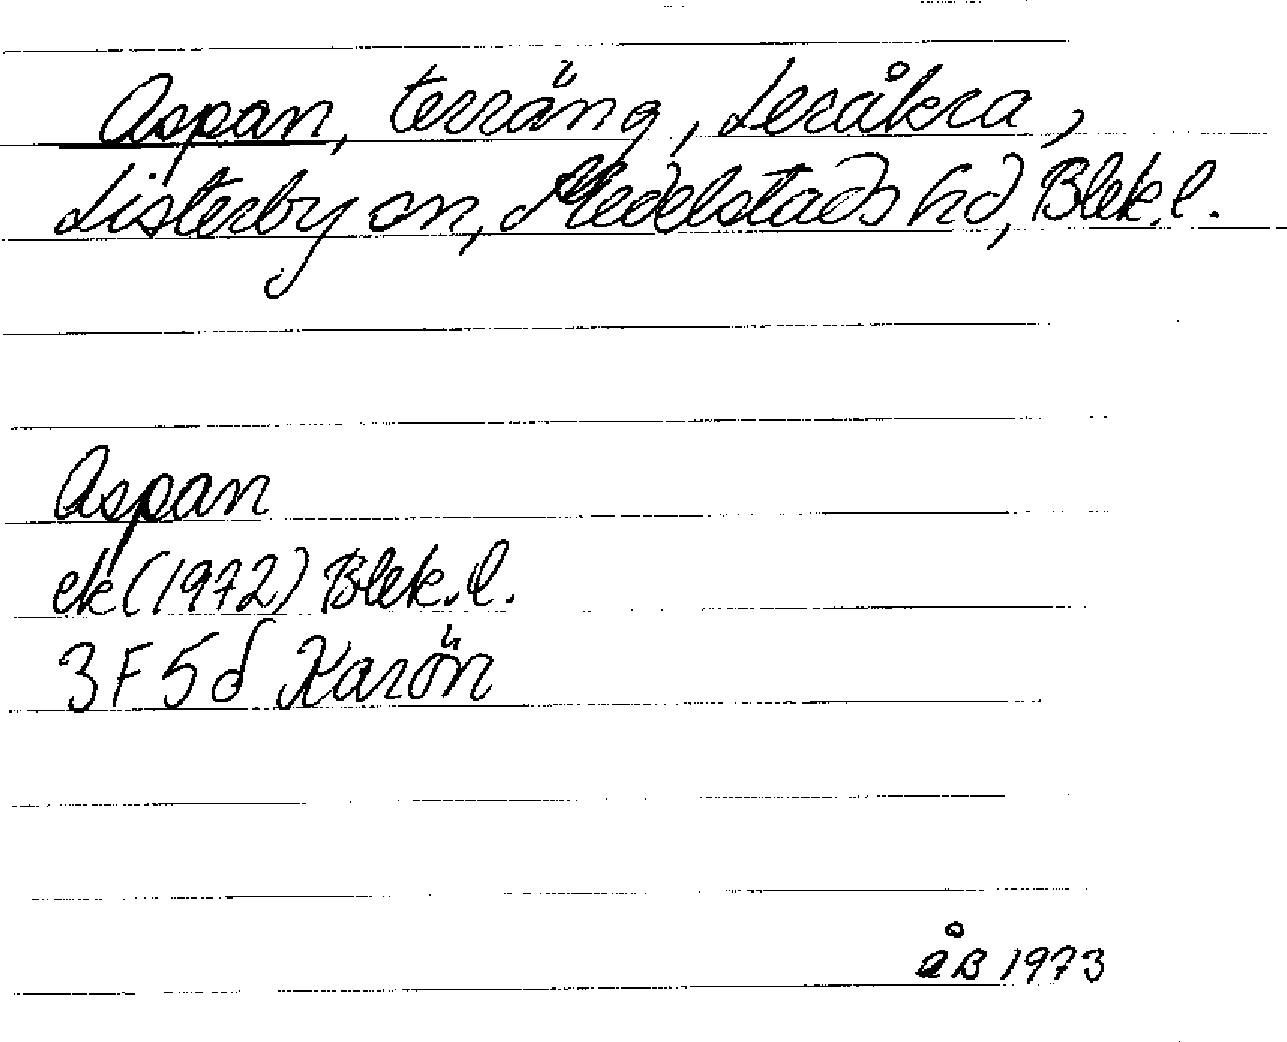 Aspan, terräng, Leråkra,
Listerby sn, Medelstads hd, Blek.l.
Aspan
ek (1972) Blek.l.
3F5d Karön
åB 1973